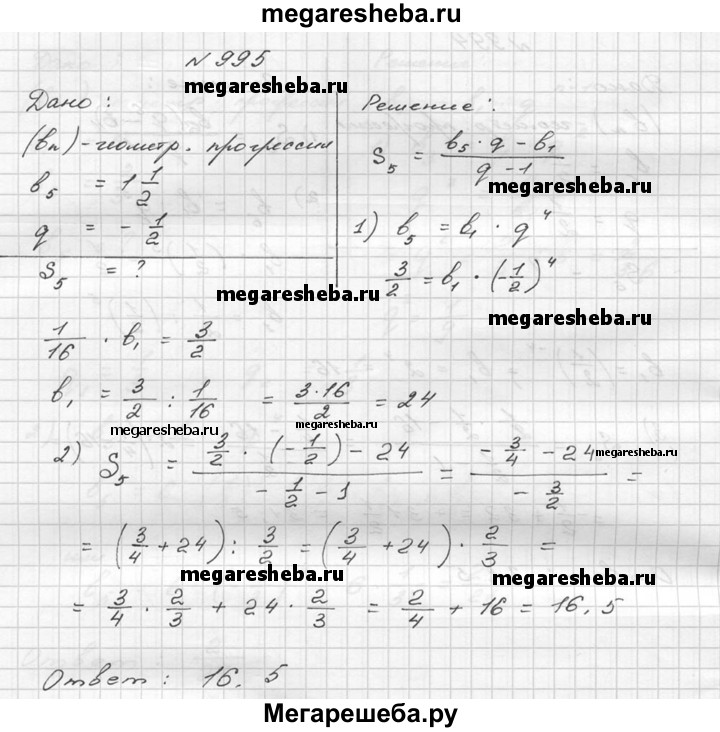 megaresheba.ru
N 995
megaresheba.ru
Дано:
(bₙ) - геометр. прогрессия
b₅ = 1 1/2
q = - 1/2
S₅ = ?
Решение:
S₅ = (b₅ · q - b₁)/(q - 1)
megaresheba.ru
1) b₅ = b₁ · q⁴
3/2 = b₁ · (-1/2)⁴
megaresheba.ru
megaresheba.ru
1/16 · b₁ = 3/2
b₁ = 3/2 : 1/16 = (3·16)/2 = 24
megaresheba.ru
megaresheba.ru
2) S₅ = (3/2 · (-1/2) - 24)/(- 1/2 - 1) = (- 3/4 - 24)/(- 3/2) =
megaresheba.ru
= (3/4 + 24) : 3/2 = (3/4 + 24) · 2/3 =
megaresheba.ru
megaresheba.ru
= 3/4 · 2/3 + 24 · 2/3 = 2/4 + 16 = 16.5
Ответ: 16.5
Мегарешеба.ру